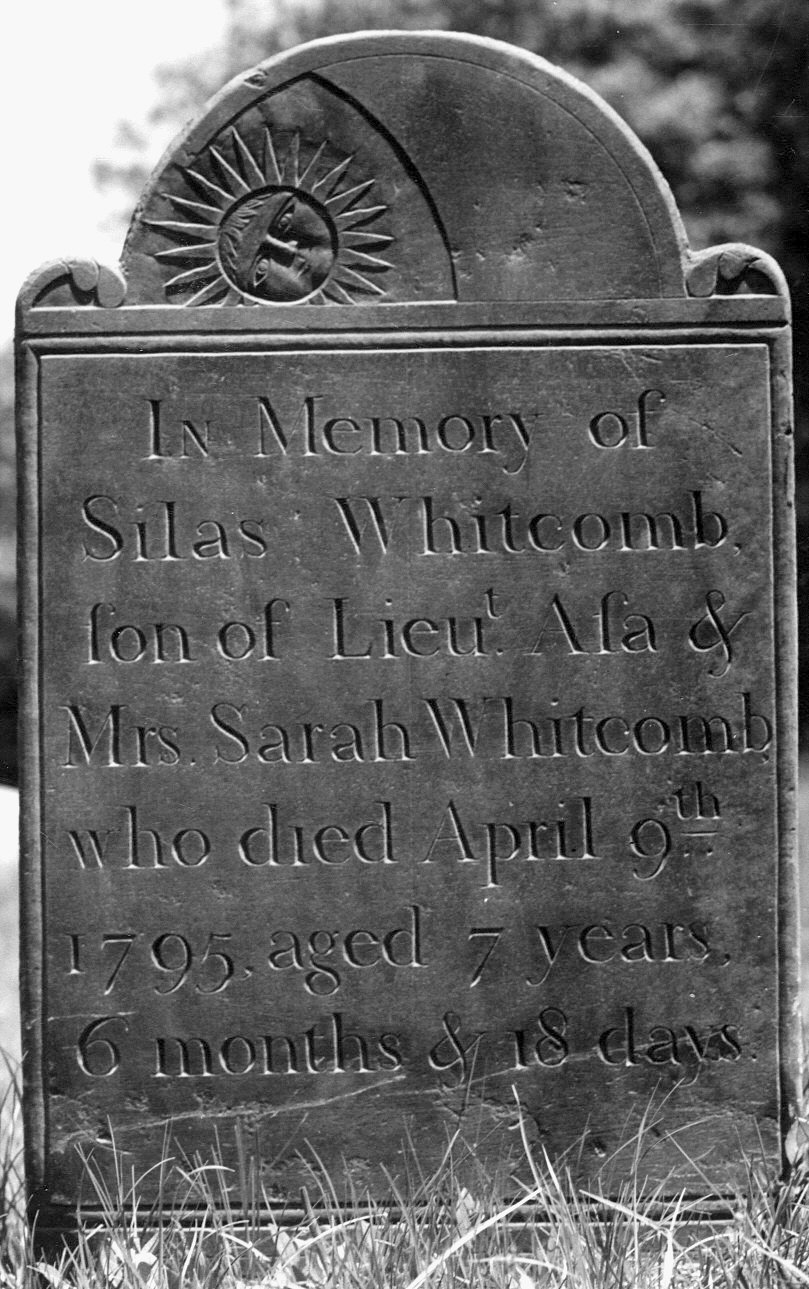 In Memory of
Silas Whitcomb,
ſon of Lieuᵗ. Aſa &
Mrs. Sarah Whitcomb,
who died April 9ᵗʰ.
1795, aged 7 years,
6 months & 18 days.